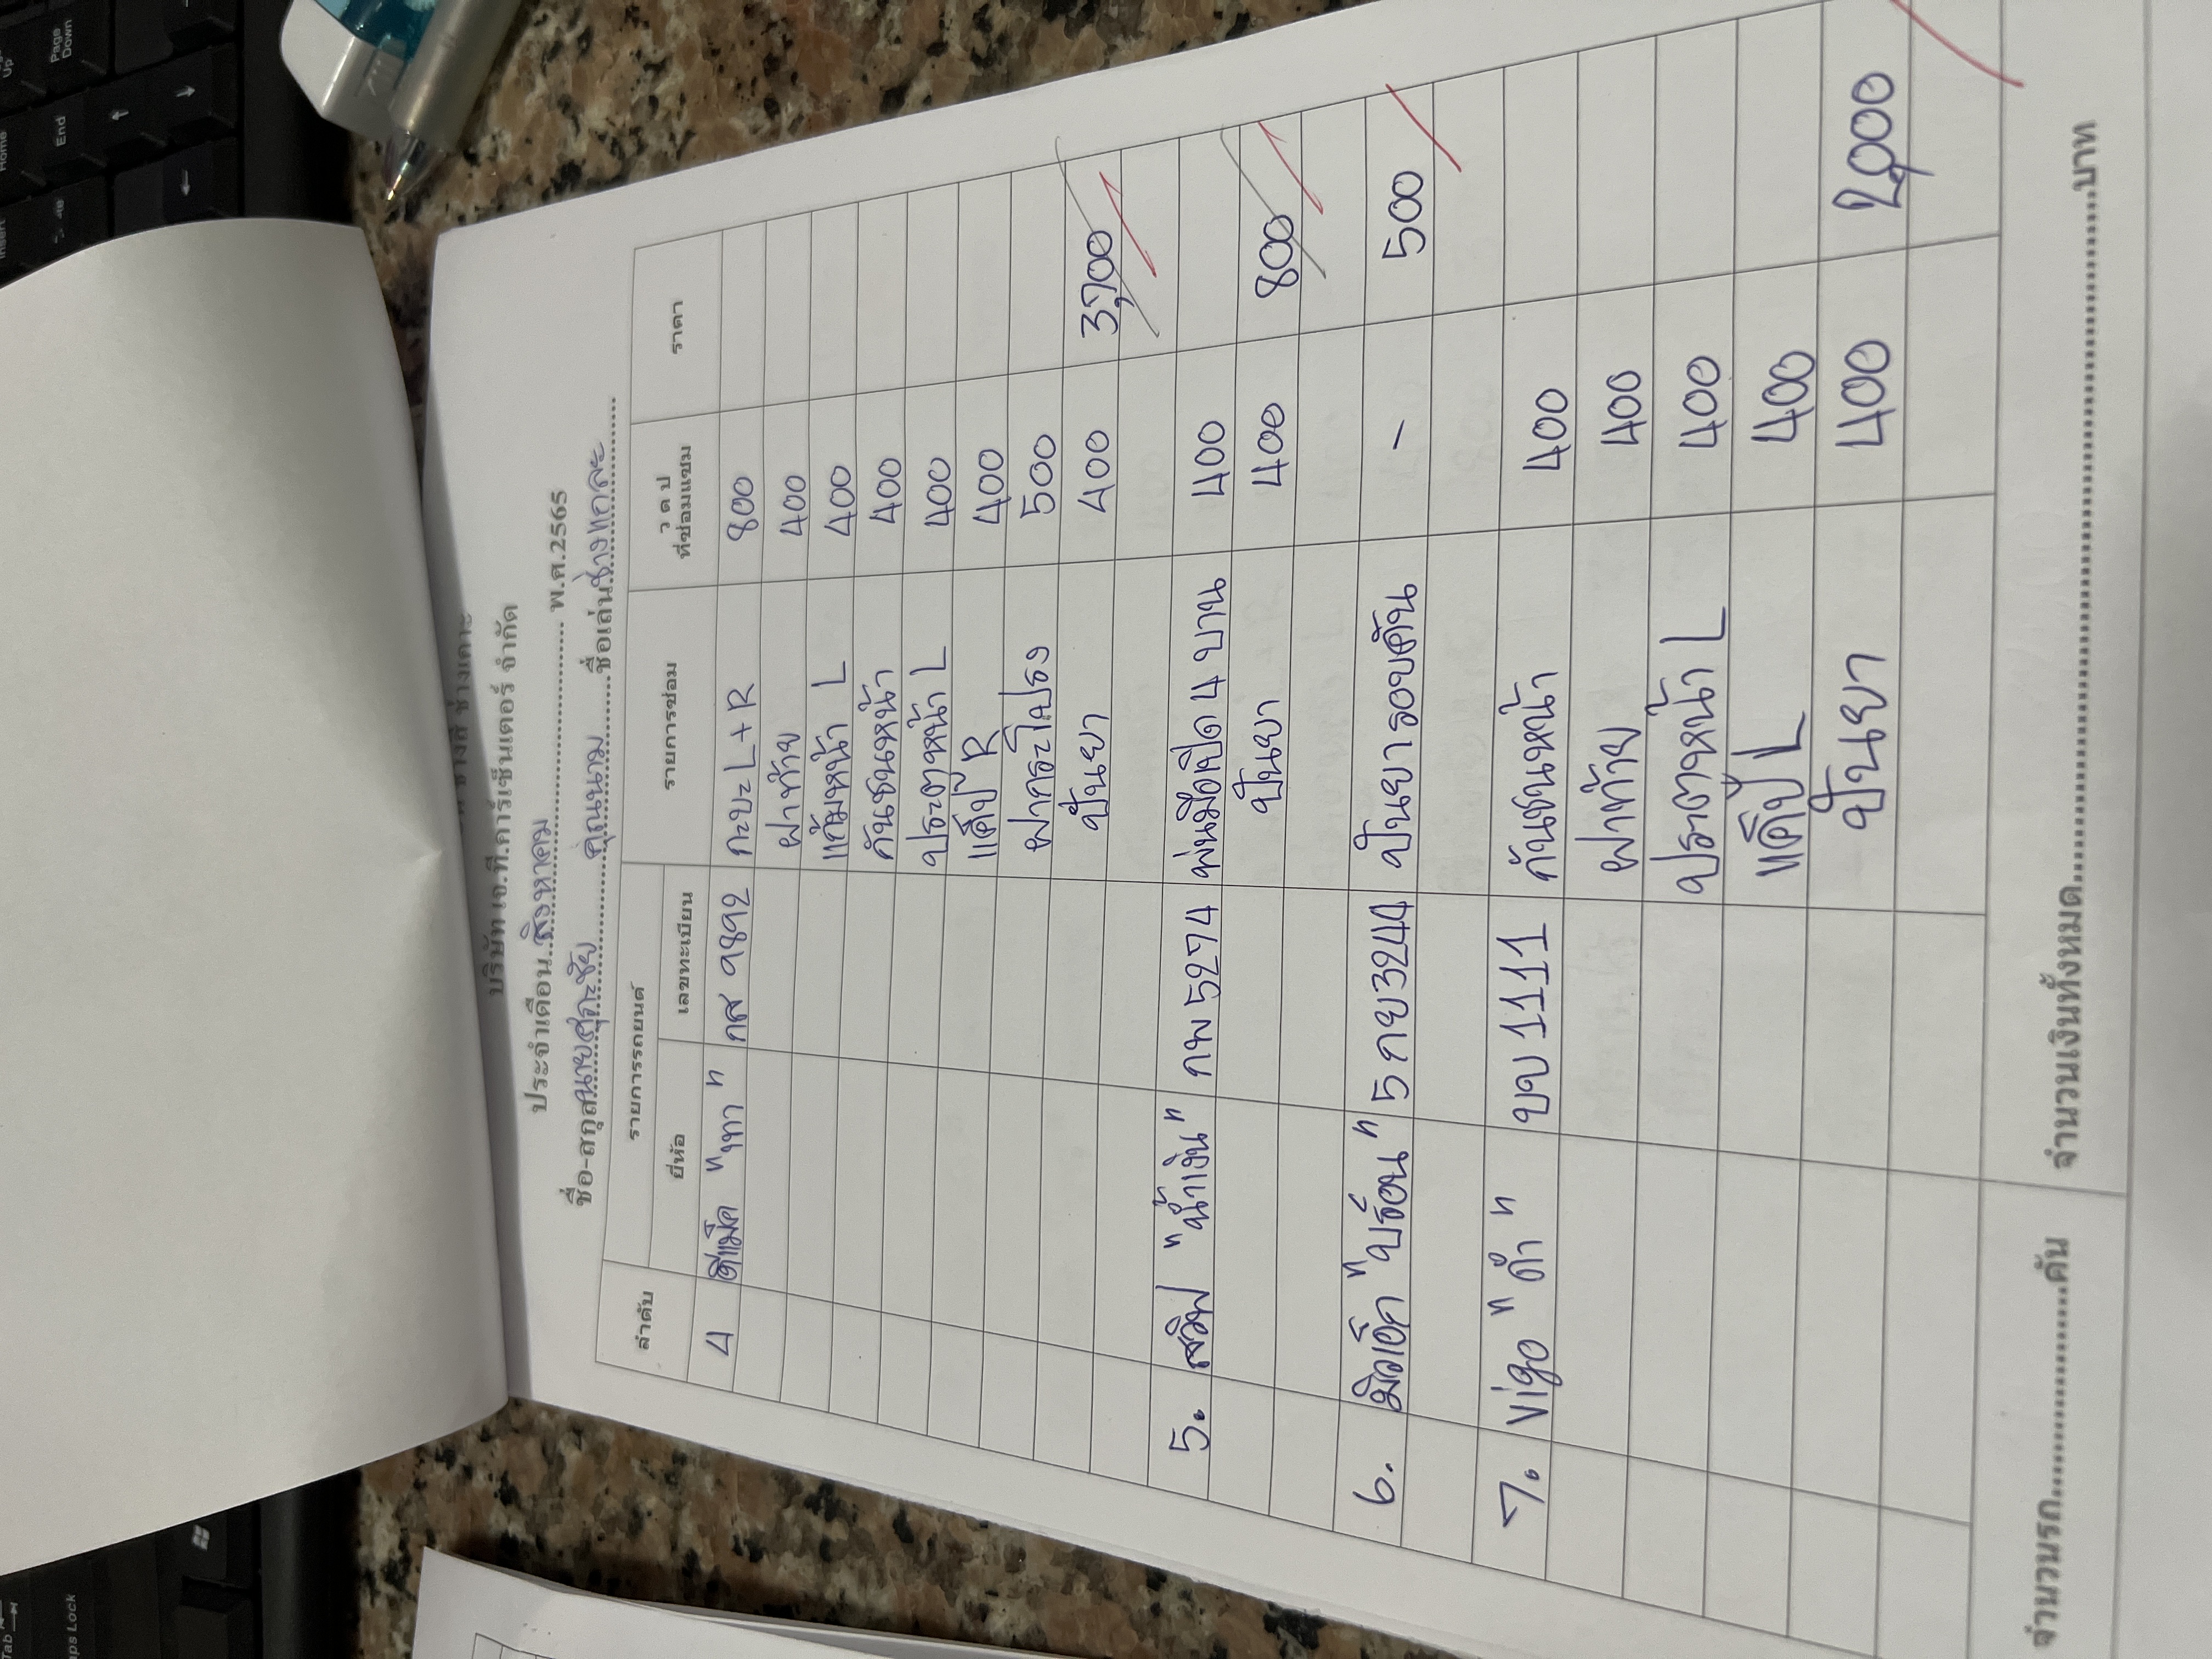 บริษัท เจ.ที.คาร์เซ็นเตอร์ จำกัด
ประจำเดือน สิงหาคม พ.ศ.2565
ชื่อ-สกุล นายศุภะชัย คุณนาม ชื่อเล่น ช่างแกละ
ลำดับ รายการรถยนต์ รายการซ่อม ว ด ป ที่ซ่อมแซม ราคา
ยี่ห้อ เลขทะเบียน
4 ดีแม็ค "เทา" กส 9892 กะบะ L+R 800
ฝาท้าย 400
แก้มหน้า L 400
กันชนหน้า 400
ประตูหน้า L 400
แค็ป R 400
ฝากระโปรง 500
ปั่นยา 400 3,700
5. สวิฟ "น้ำเงิน" กพ 5274 พ่นมือเปิด 4 บาน 400
ปั่นยา 400 800
6. มิลเอ็ค "บร์อน" 5 กย 3244 ปั่นยารอบคัน - 500
7. Vigo "ดำ" บบ 1111 กันชนหน้า 400
ฝาท้าย 400
ประตูหน้า L 400
แค็ป L 400
ปั่นยา 400 2,000
จำนวนรถ..........คัน จำนวนเงินทั้งหมด..........บาท